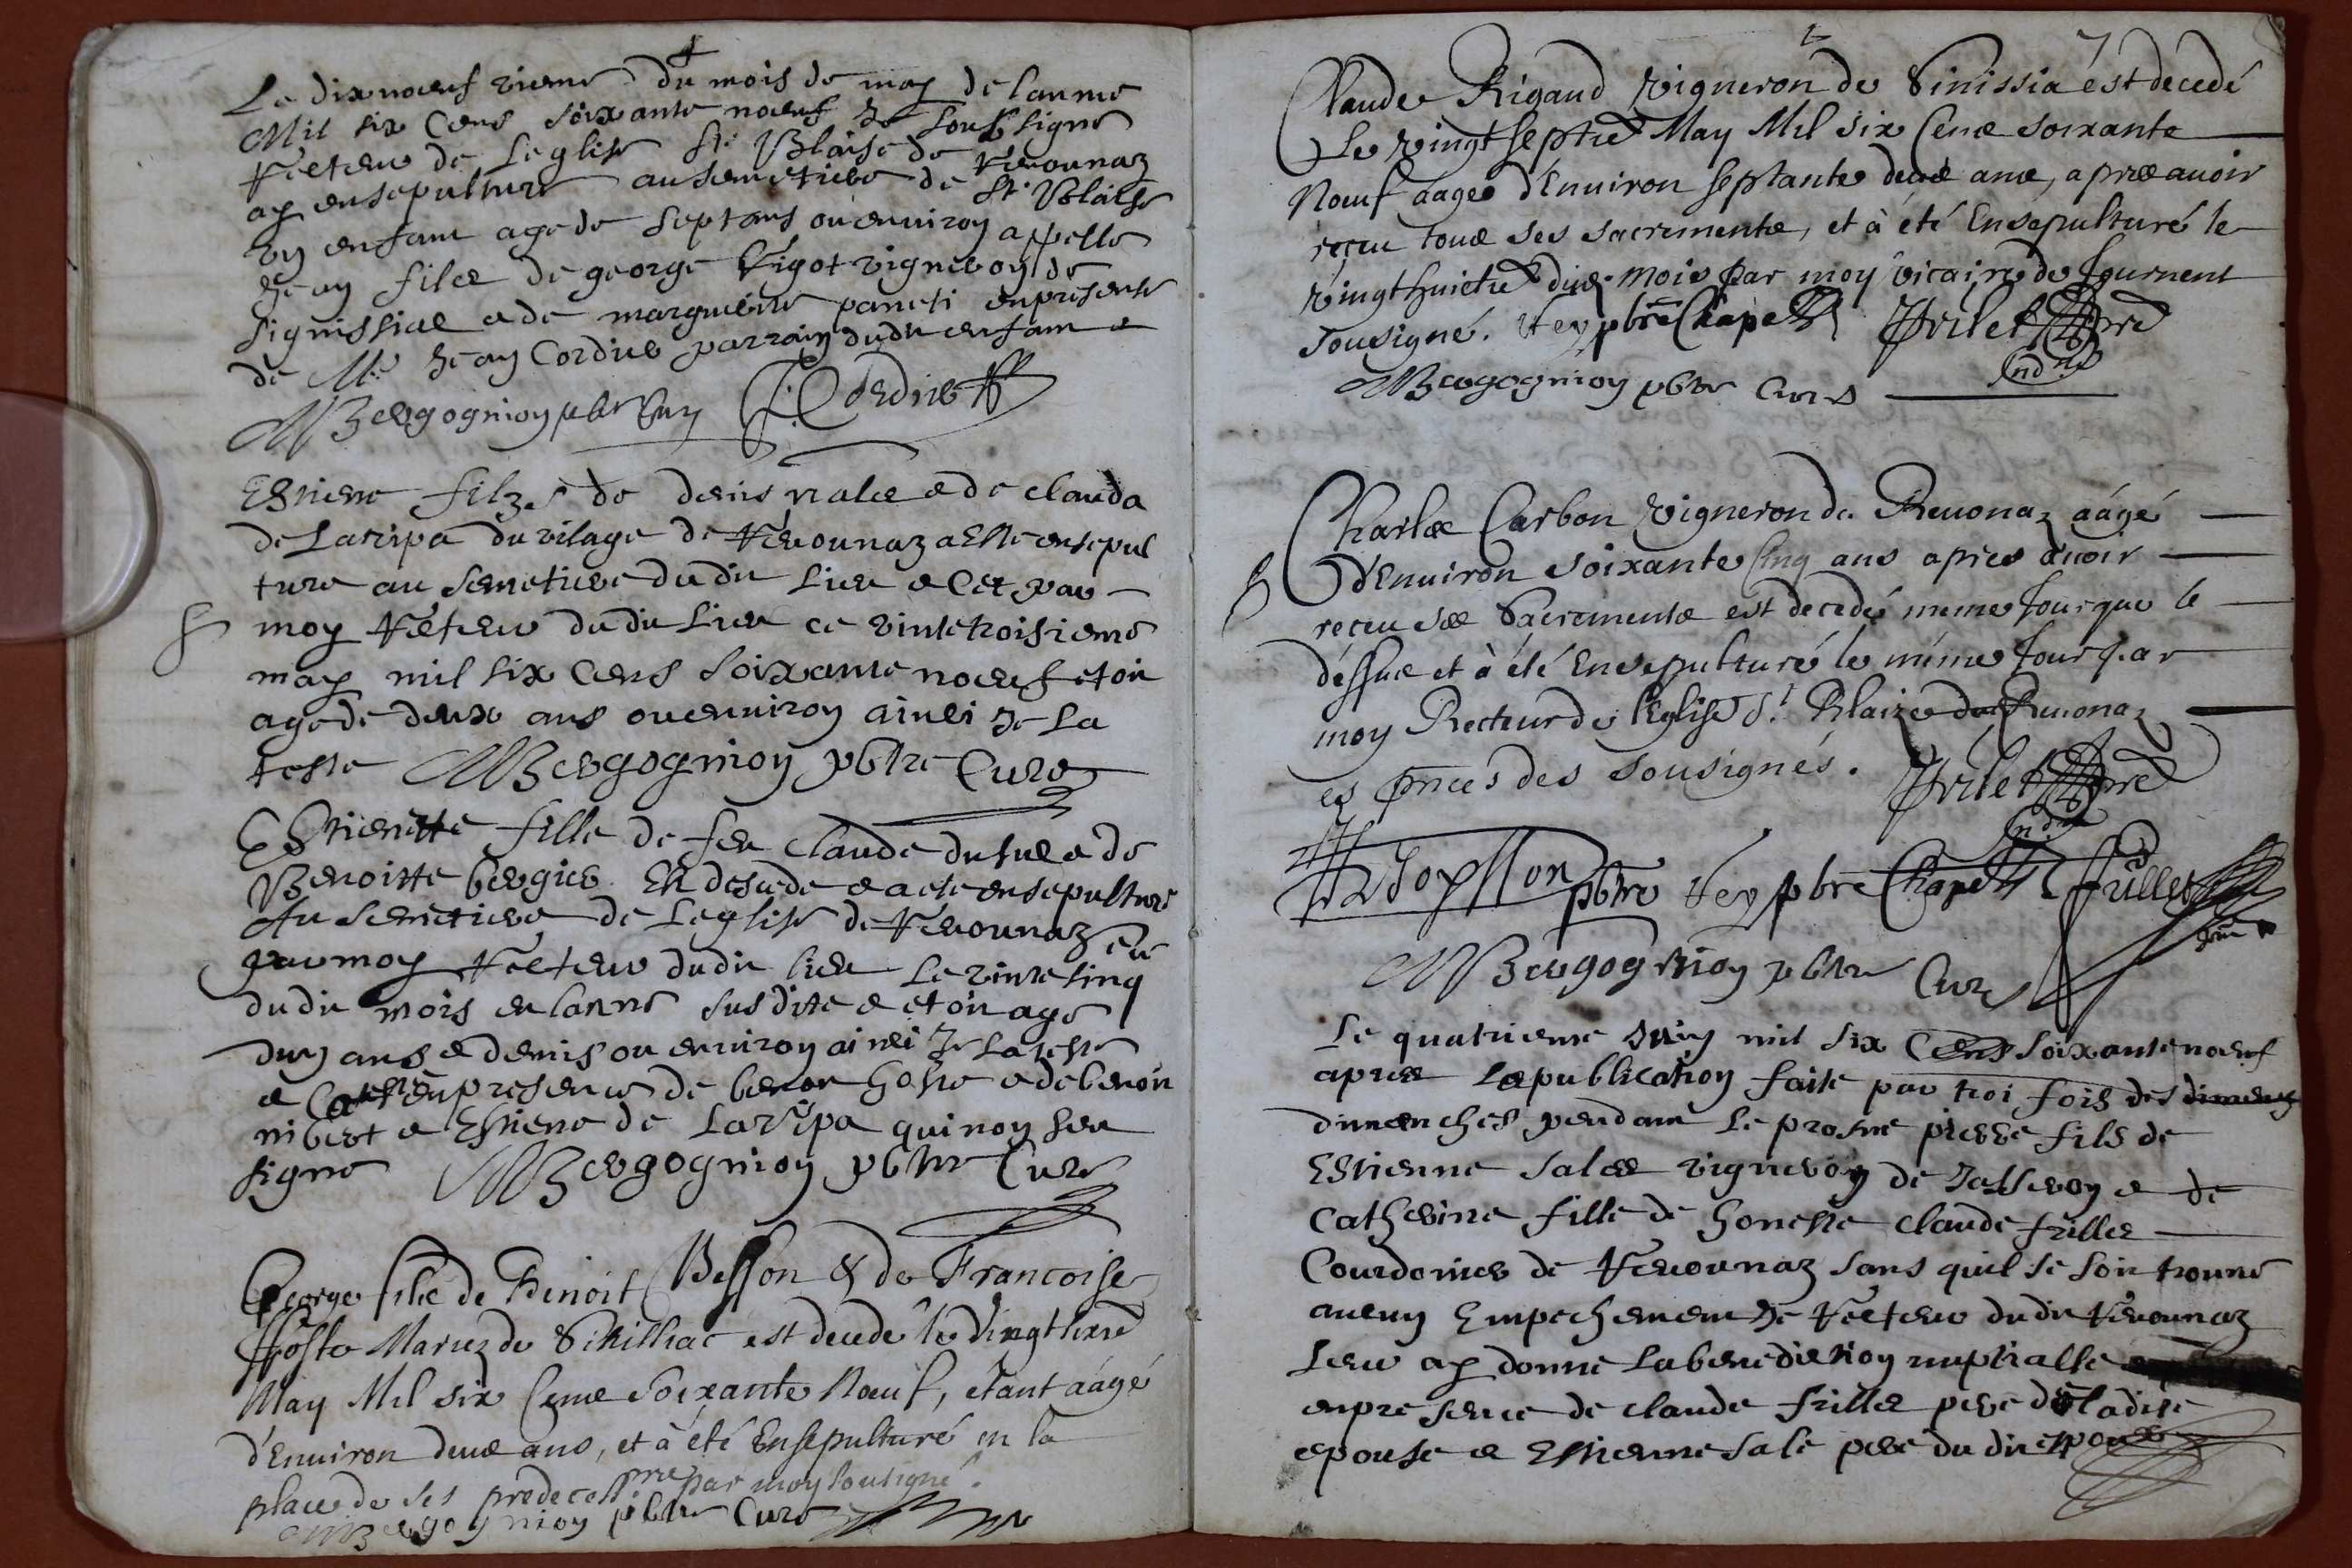 Le dixnoeuf vieme du mois de may de lanne
Mil six Cens soixante noeuf Je soubsigne
Recteur de Leglise St Blaise de Revounaz
ay ensepulture au semetiere de St Blaise
un enfant age de sept ans ou environ appelle
Jean filz de george Rigot vigneron de
signissiae e de marguerite paneti en presente
de Mr Jean Cordier parrain dudit enfant e
M Bergognion pbtr Cure J: Cordier
Estiene filz de denis vialee e de clauda
de Laripa du vilage de Revounaz a Este ensepul
ture au semetiere dudit Lieu e Cet par
moy Recteur dudit Lieu ce vinte troisieme
may mil six Cens soixante noeuf etoit
age de deux ans ou environ ainsi Je La
teste M Bergognion pbtre Cure
EStienette fille de feu claude dutue e de
Benoitte bergier Est desede e a ete ensepulture
Au semetiere de Leglise de Revounaz
par moy Recteur dudit lieu Le vinte sinq
dudit mois en lanne susdite e etoit age
dun ans e demis ou environ ainsi Je La teste
e Cet en presence de benoit hoste e de benoit
nibert e Estiene de Laripa qui non seu
signe M Bergognion pbtre Cure
George filz de Benoit Besson & de Francoise
hoste Mariez de Sinilliac est decede le vingt sixe
May Mil six Cens Soixante Noeuf, étant áágé
d'Environ deux ans, et à été Ensepulturé en la
place de ses predecess. par moy sousigné.
M Bergognion pbtr Cure
7
Claude Rigaud Vigneron de Sinissia ést decedé
Le vingt septie May Mil six Cens soixante
Noeuf aage d'Environ septante deux ans, apres avoir
reçeu tous ses sacrements, et à été Ensépulturé le
vingt huictie dud. mois par moy vicaire de Journent
sousigné. pbre Chapell
M Bergognion pbtr Cure
Charles Carbon Vigneron de Revonaz áágé
d'Environ soixante Cinq ans apres avoir
reçeu ses Sacrements est decedé meme Jour que le
déssus et à été Ensepulturé le même Jour par
moy Recteur de l'Eglise St Blaize de Revonaz
es pnces des sousignés.
pbtre pbre Chapell Frillet
M Bergognion pbtr Cure
Le quatrieme Juin mil six Cens soixante noeuf
apres La publication faite par troi fois des dimens
dimenches pendant Le prosne pierre fils de
EStienne Salee vigneron de Jasseron e de
Catherine fille de honeste claude frillet
Courdonier de Revounaz sans quil se soit trouve
aucun Empechement Je Recteur dudit Revounaz
Lieu ay donne La benediction nuptialle
en presence de claude frillet pere de ladite
epouse e Estienne Sale pere dudit epoux